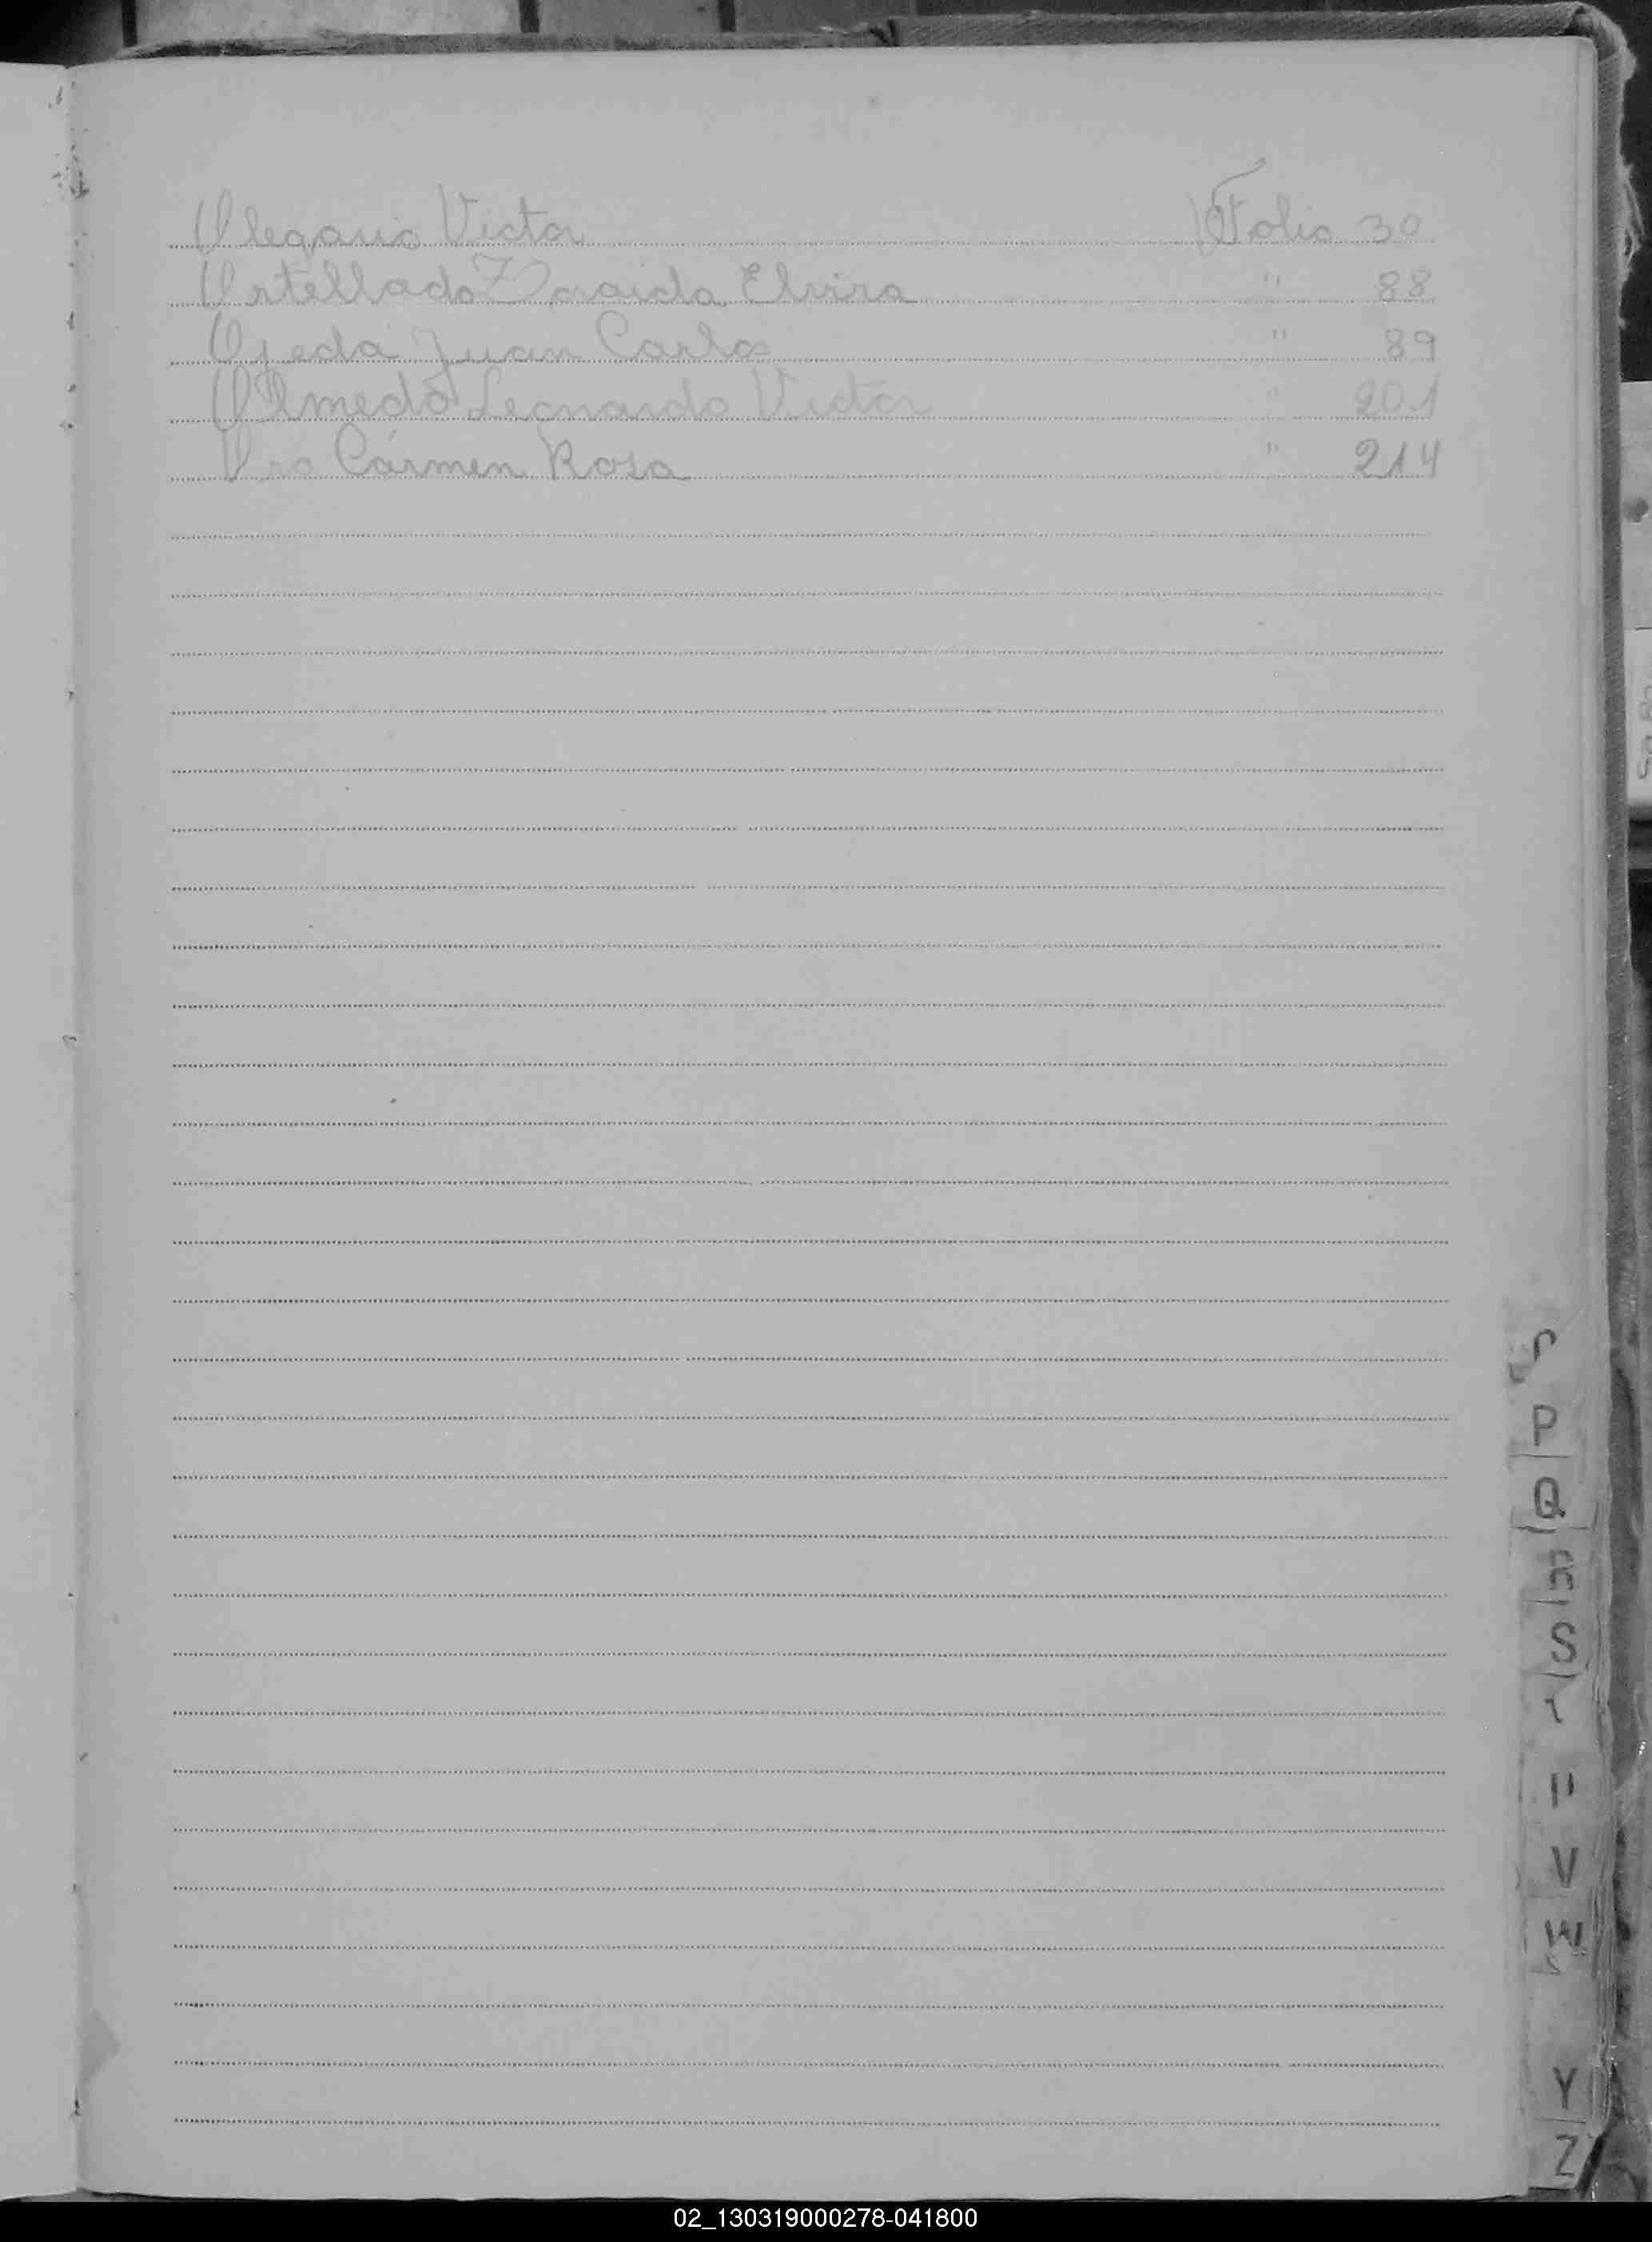 Olegario Victor Folio 30
Ortellado Zoraida Elvira " 88
Ojeda Juan Carlos " 89
Olmedo Leonardo Victor " 201
Oro Cármen Rosa " 214
P
Q
R
S
V
W
Y
Z
02_130319000278-041800